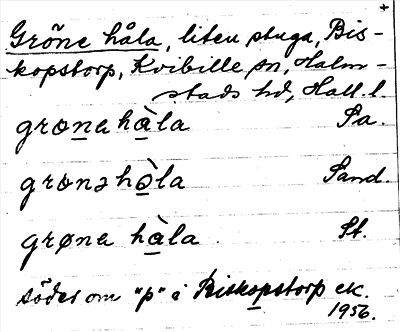 +
Gröne håla, liten stuga, Bis-
kopstorp, Kvibille sn, Halm-
stads hd, Hall. l.
grøna hàla Pa.
grønə hòla Sand.
grøna hàla St.
söder om "p" i Biskopstorp ek.
1956.